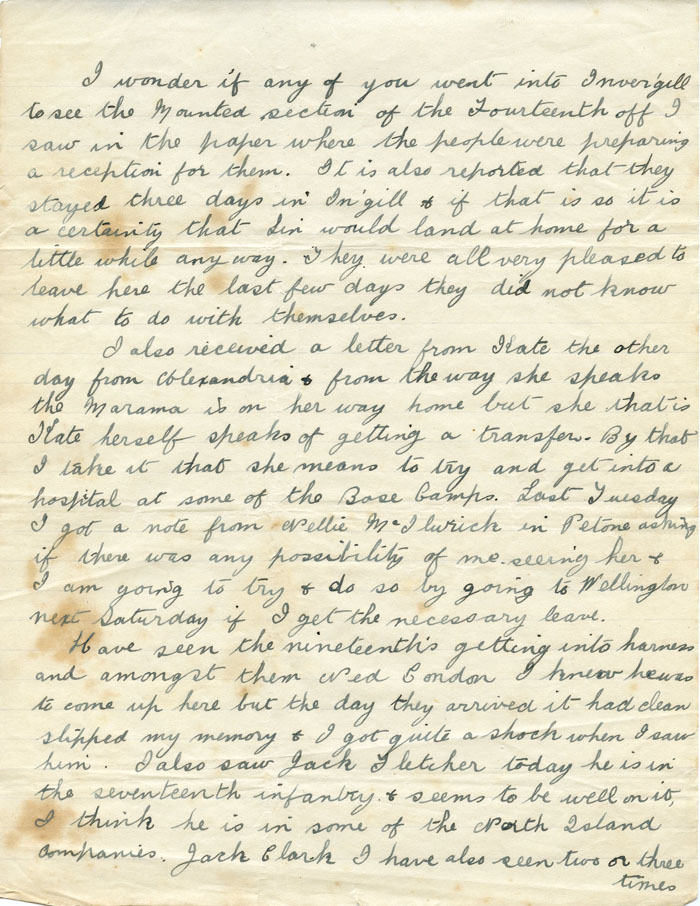 I wonder if any of you went into Inver'gill
to see the Mounted section of the Fourteenth off I
saw in the paper where the people were preparing
a reception for them. It is also reported that they
stayed three days in In'gill & if that is so it is
a certainity that Lin would land at home for a
little while any way. They were all very pleased to
leave here the last few days they did not know
what to do with themselves.
I also received a letter from Kate the other
day from Alexandria & from the way she speaks
the Marama is on her way home but she that is
Kate herself speaks of getting a transfer. By that
I take it that she means to try and get into a
hospital at some of the Base Camps. Last Tuesday
I got a note from Nellie McIlwrick in Petone asking
if there was any possibility of me seeing her &
I am going to try & do so by going to Wellington
next Saturday if I get the necessary leave.
Have seen the nineteenth's getting into harness
and amongst them Ned Condon I knew he was
to come up here but the day they arrived it had clean
slipped my memory & I got quite a shock when I saw
him. I also saw Jack Fletcher today he is in
the seventeenth infantry & seems to be well on it,
I think he is in some of the North Island
Companies. Jack Clark I have also seen two or three
times